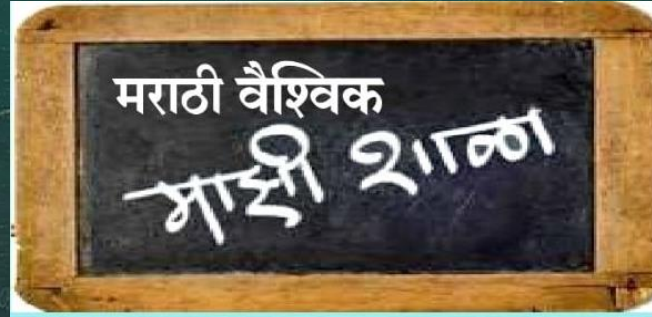 मराठी वैश्विक
माझी शाळा